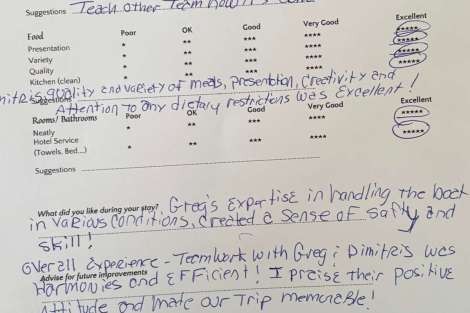 Suggestions Teach other Team how it's done
Food Poor OK Good Very Good Excellent
Presentation * ** *** **** *****
Variety * ** *** **** *****
Quality * ** *** **** *****
Kitchen (clean) * ** *** **** *****
mitris quality and variety of meals, presentation, creativity and
Suggestions Attention to any dietary restrictions was Excellent!
Rooms/ Bathrooms Poor OK Good Very Good Excellent
Neatly * ** *** **** *****
Hotel Service * ** *** **** *****
(Towels, Bed...)
Suggestions
What did you like during your stay? Greg's Expertise in handling the boat
in various conditions, created a sense of safty and
skill!
Overall Experience - Teamwork with Greg & Dimitris was
Advice for future improvements
Harmonies and Efficient! I preise their positive
Attitude and make our Trip memorable!